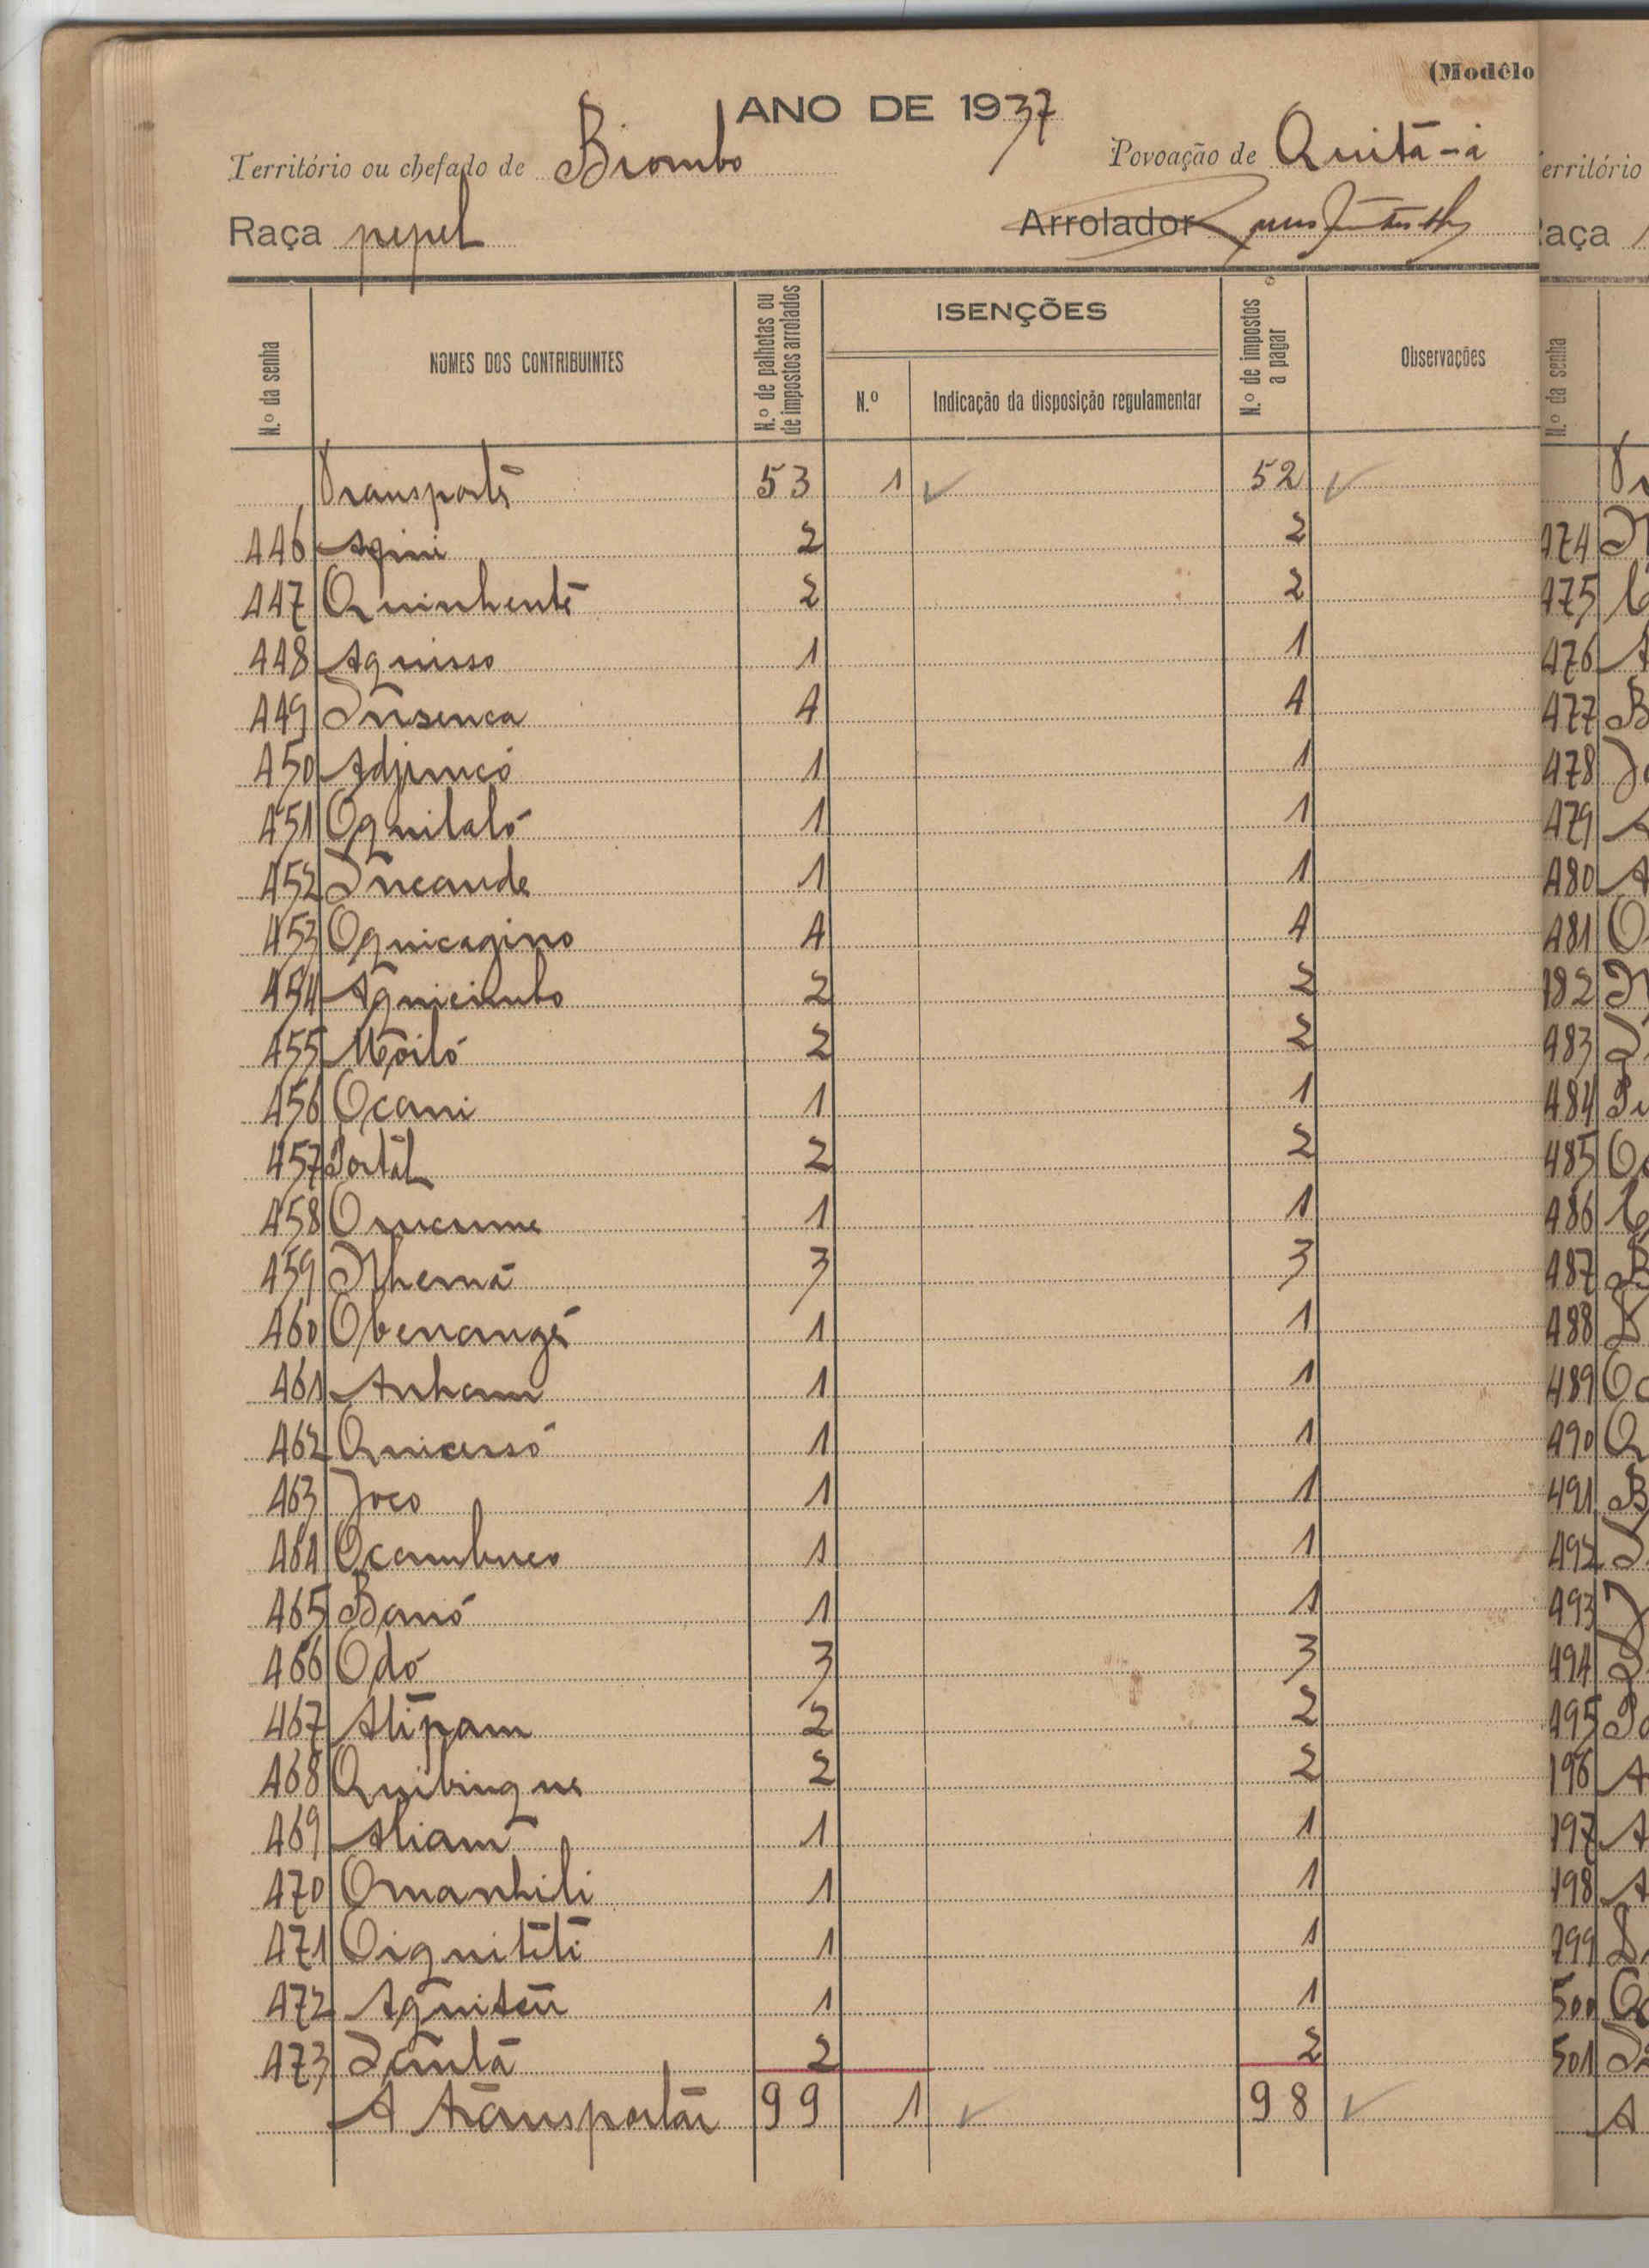 (Modêlo
ANO DE 1937
Território ou chefado de Biombo Povoação de Quitá-á
Raça pepel Arrolador
N.º da senha NOMES DOS CONTRIBUINTES N.º de palhotas ou de impostos arrolados ISENÇÕES N.º de impostos a pagar Observações
N.º Indicação da disposição regulamentar
Transporte 53 1 52
446 Apini 2 2
447 Quinhenté 2 2
448 Aquisso 1 1
449 Insenca 4 4
450 Adjimcó 1 1
451 Oquilaló 1 1
452 Incande 1 1
453 Oquicagino 4 4
454 2 2
455 Moiló 2 2
456 Ocani 1 1
457 Portal 2 2
458 1 1
459 Nhemá 3 3
460 Obenangé 1 1
461 Anham 1 1
462 Quicessó 1 1
463 Joco 1 1
464 Ocambuco 1 1
465 Banó 1 1
466 Odó 3 3
467 Atipam 2 2
468 Quibinque 2 2
469 Aliam 1 1
470 Omanhili 1 1
471 Oiquititi 1 1
472 Aquiteu 1 1
473 2 2
A transportar 99 1 98
erritório
aça
N.º da senha
474
475
476
477
478
479
480
481
482
483
484
485
486
487
488
489
490
491
492
493
494
495
196
197
198
199
500
501